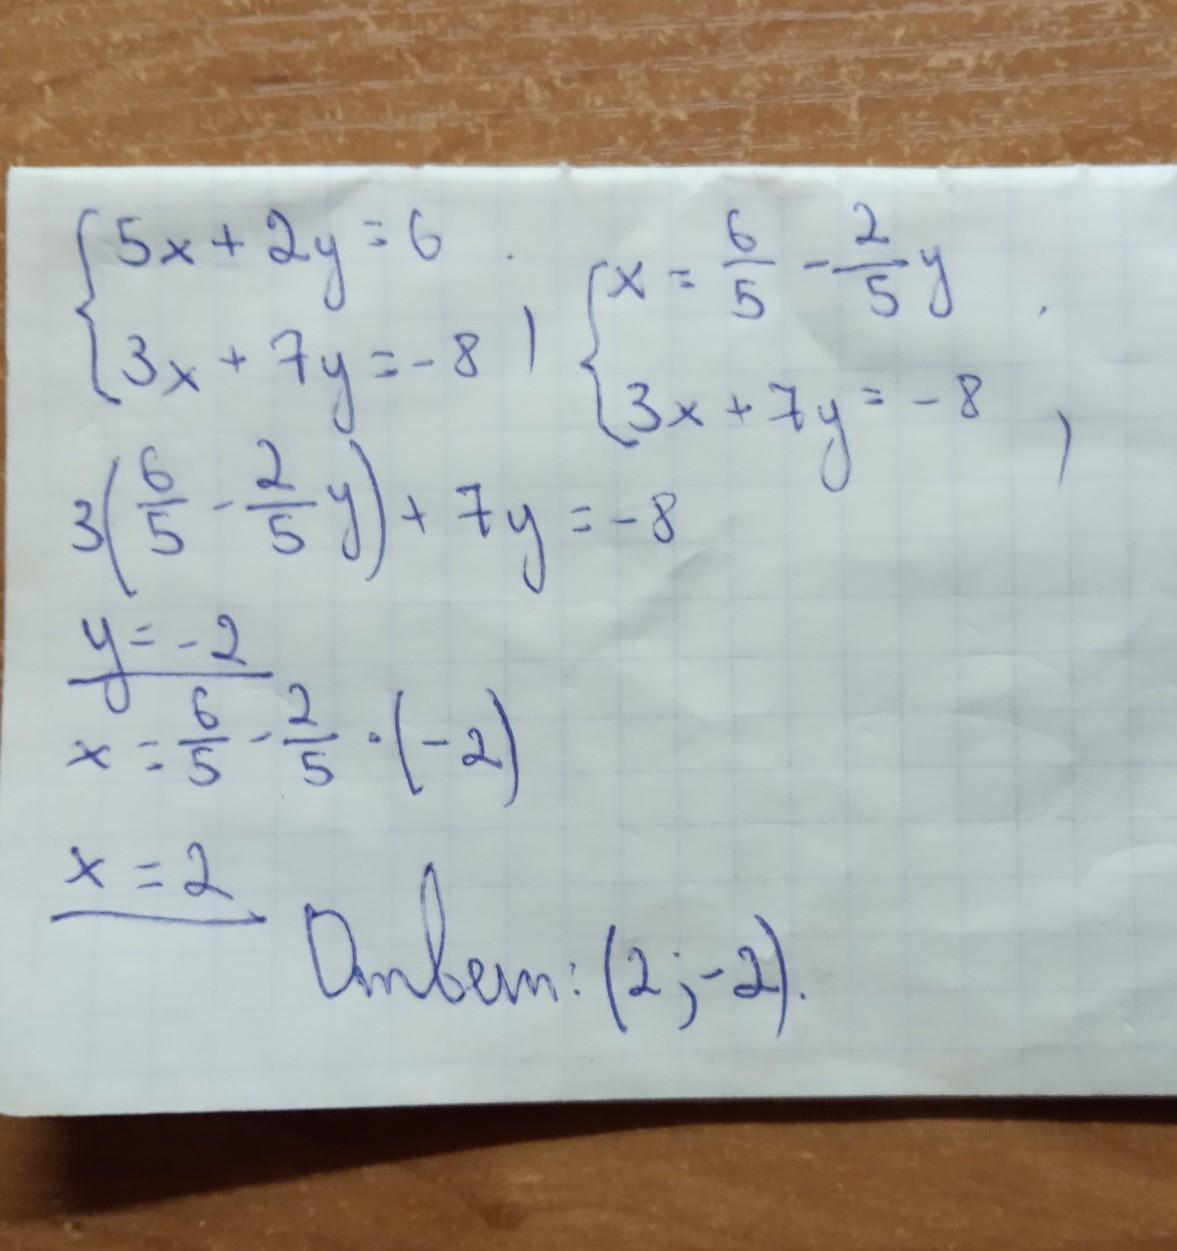 {5x + 2y = 6
{3x + 7y = -8 ,
{x = 6/5 - 2/5 y
{3x + 7y = -8 ,
3(6/5 - 2/5 y) + 7y = -8
y = -2
x = 6/5 - 2/5 · (-2)
x = 2
Ответ: (2; -2).